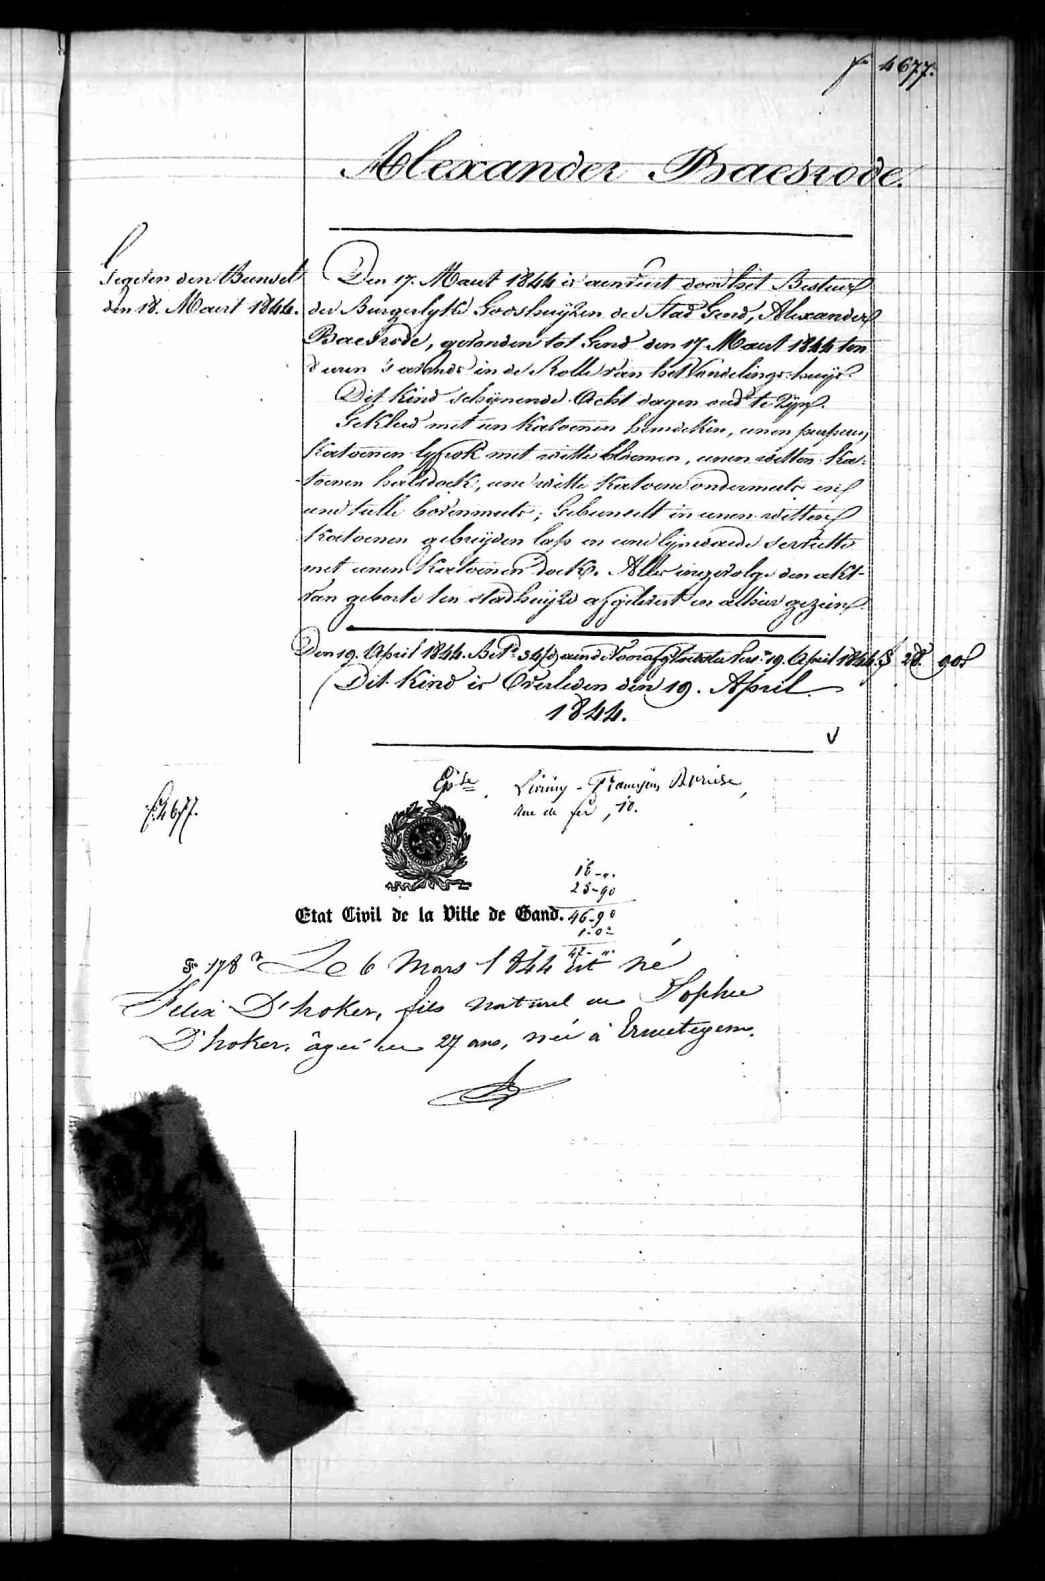 fo 4677.
Alexander Baesrode.
Gegeven den Bunsel
den 18. Maert 1844.
Den 17. Maert 1844 is aenveert door het Bestuer
der Burgerlyke Godshuijzen der Stad Gend, Alexander
Baesrode, gevonden tot Gend den 17 Maert 1844 ten
uren 's avonds in de Rolle van het Vondelings-huijs.
Dit Kind schijnende Acht dagen oud te Zijn.
Gekleed met een Katoenen hemdeken, eenen purperen
Katoenen lyfrok met witte bloemen, eenen witten Ka-
-toenen halsdoek, eene witte Katoene ondermuts en
eene tulle bovenmuts; Gebunselt in eenen witten
Katoenen gebreyden lap en eene lijnwaede serviette
met eenen Katoenen doek. Alles ingevolge den akt-
van geboorte ten stadhuijze afgelevert en alhier gezien.
Den 19. April 1844. Bet. 34 d. 19. April 1844. f 28 90
Dit Kind is Overleden den 19. April
1844.
V
fo 4677.
Epse Livine-Françoise Devriese,
rue de fer, 10.
18-"
28-90
46-90
1-02
47-"
Etat Civil de la Ville de Gand.
No 178 Le 6 Mars 1844 est né
Felix D'hoker, fils naturel de Sophie
D'hoker, âgée de 27 ans, née à Erwetegem.